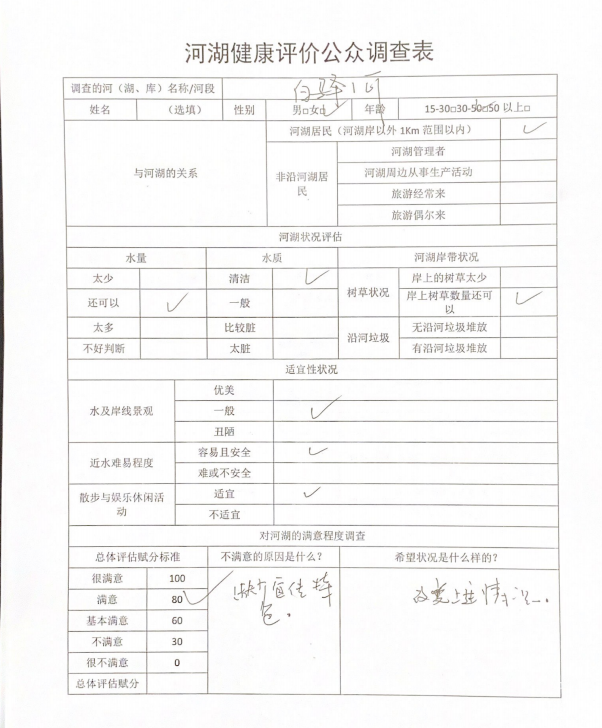 河湖健康评价公众调查表
调查的河（湖、库）名称/河段 白驿河
姓名 （选填） 性别 男□女□ ✓ 年龄 15-30□30-50□50 以上□
与河湖的关系 河湖居民（河湖岸以外 1Km 范围以内） ✓
非沿河湖居民 河湖管理者
河湖周边从事生产活动
旅游经常来
旅游偶尔来
河湖状况评估
水量 水质 河湖岸带状况
太少 清洁 ✓ 树草状况 岸上的树草太少
还可以 ✓ 一般 岸上树草数量还可以 ✓
太多 比较脏 沿河垃圾 无沿河垃圾堆放
不好判断 太脏 有沿河垃圾堆放
适宜性状况
水及岸线景观 优美
一般 ✓
丑陋
近水难易程度 容易且安全 ✓
难或不安全
散步与娱乐休闲活动 适宜 ✓
不适宜
对河湖的满意程度调查
总体评估赋分标准 不满意的原因是什么？ 希望状况是什么样的？
很满意 100
满意 80 ✓
基本满意 60
不满意 30
很不满意 0
总体评估赋分
缺少宣传特
色。
改变上述情况。